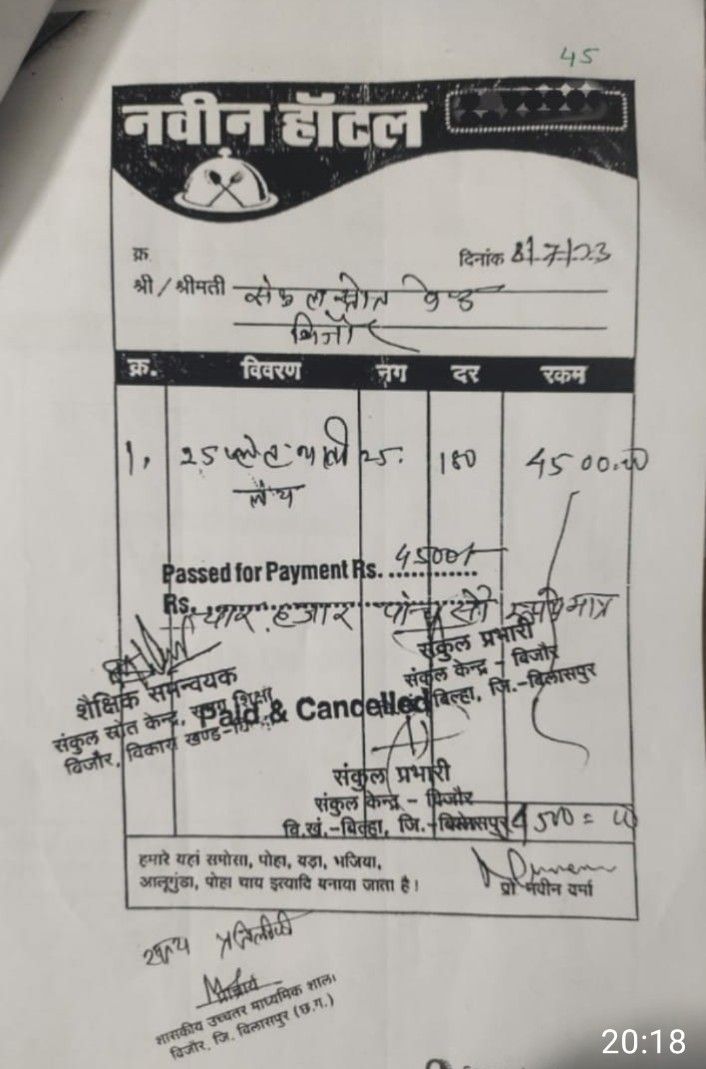 45
नवीन हॉटल
क्र.
दिनांक 31/7/23
श्री / श्रीमती संकुल स्रोत केन्द्र
बिजौर
क्र. विवरण नग दर रकम
1. 25 प्लेट थाली 25. 180 4500.00
Passed for Payment Rs. 4500/-
Rs. चार हजार पांच सौ रूपये मात्र
संकुल प्रभारी
संकुल केन्द्र - बिजौर
बिल्हा, जि.-बिलासपुर
शैक्षिक समन्वयक
संकुल स्रोत केन्द्र, समग्र शिक्षा
बिजौर, विकास खण्ड-
Paid & Cancelled
संकुल प्रभारी
संकुल केन्द्र - बिजौर
वि.खं.-बिल्हा, जि.-बिलासपुर
4500=00
हमारे यहां समोसा, पोहा, बड़ा, भजिया,
आलूगुंडा, पोहा चाय इत्यादि बनाया जाता है।
प्रो नवीन वर्मा
सत्य प्रतिलिपी
प्राचार्य
शासकीय उच्चतर माध्यमिक शाला
बिजौर, जि. बिलासपुर (छ.ग.)
20:18